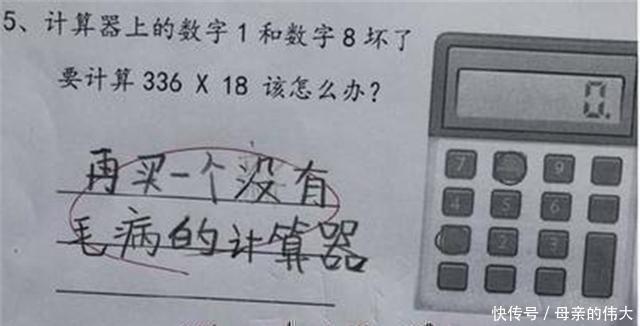 5、计算器上的数字1和数字8坏了
要计算336 X 18 该怎么办?
再买一个没有
毛病的计算器
0.
7 9
4 5 6
2 3
快传号／母亲的伟大